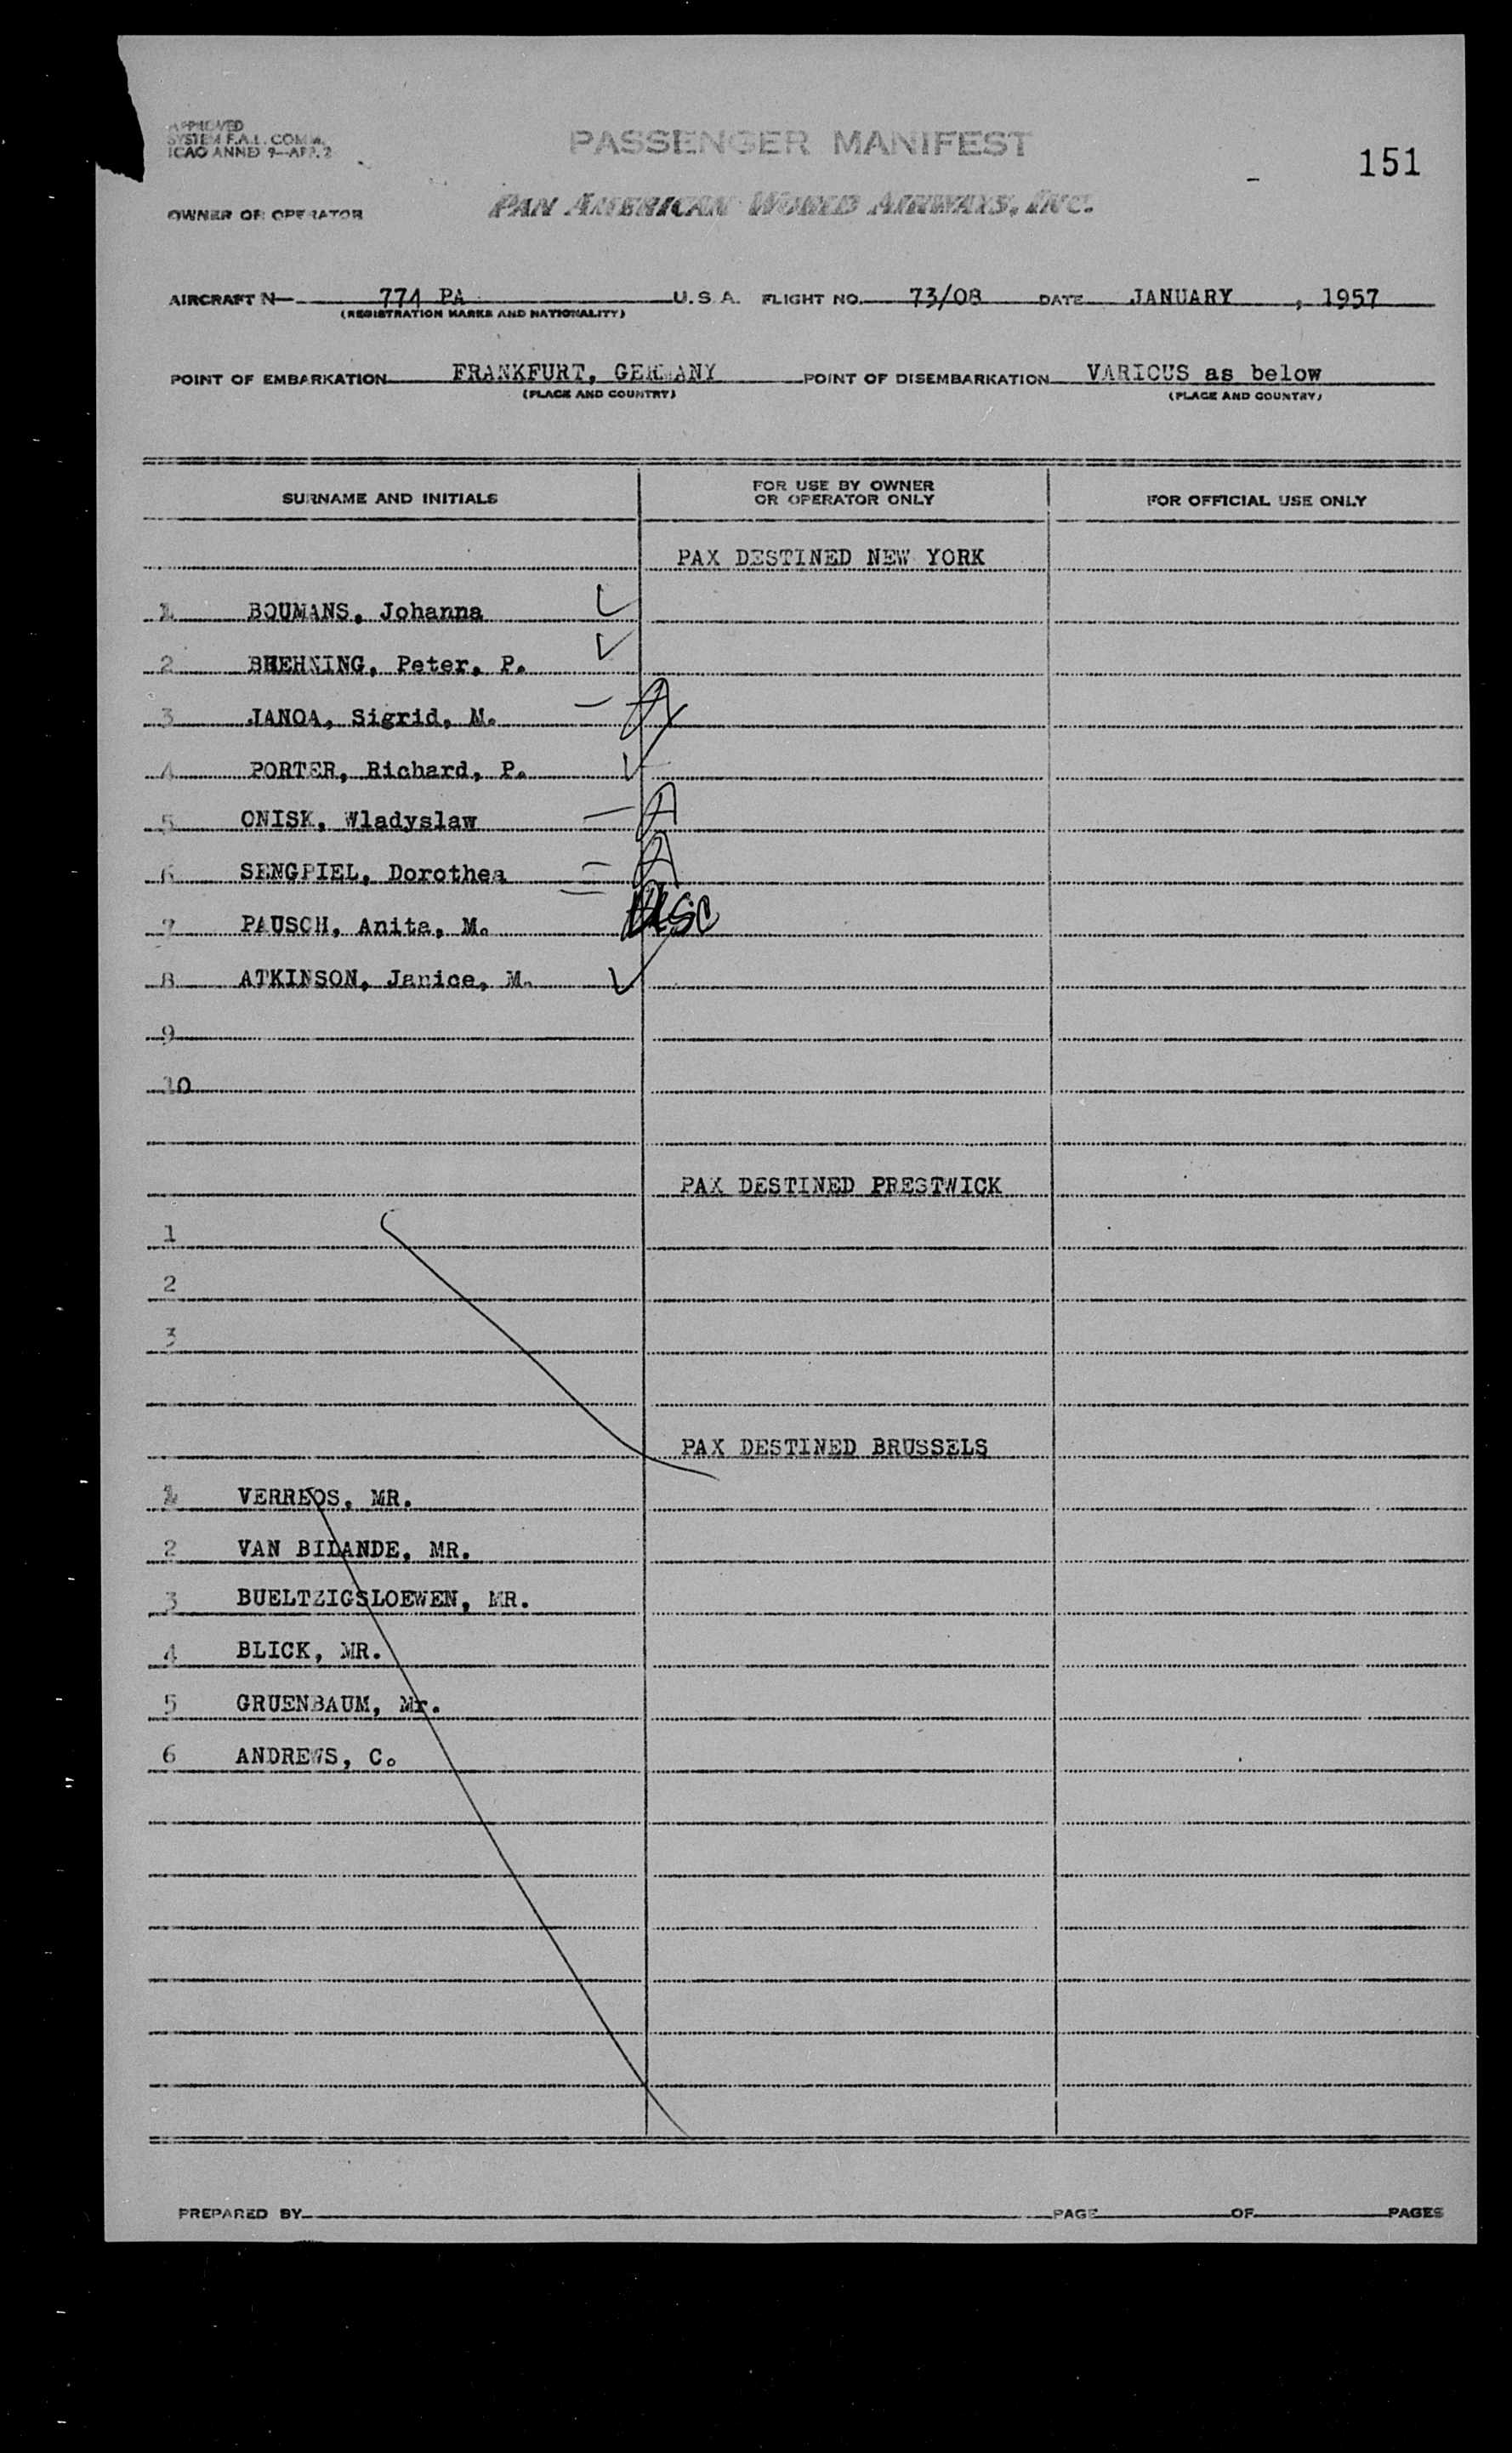 APPROVED
SYSTEM F.A.L. COMM.
ICAO ANNEX 9—APP. 2
PASSENGER MANIFEST
151
OWNER OR OPERATOR PAN AMERICAN WORLD AIRWAYS, INC.
AIRCRAFT N 774 PA U.S.A. FLIGHT NO. 73/08 DATE JANUARY , 1957
(REGISTRATION MARKS AND NATIONALITY)
POINT OF EMBARKATION FRANKFURT, GERMANY POINT OF DISEMBARKATION VARIOUS as below
(PLACE AND COUNTRY) (PLACE AND COUNTRY)
SURNAME AND INITIALS FOR USE BY OWNER OR OPERATOR ONLY FOR OFFICIAL USE ONLY
PAX DESTINED NEW YORK
1 BOUMANS, Johanna
2 Peter, P.
3 JANOA, Sigrid, M. A
4 PORTER, Richard, P.
5 ONISK, Wladyslaw A
6 SENGPIEL, Dorothea A
7 PAUSCH, Anita, M. USC
8 ATKINSON, Janice, M.
9
10
PAX DESTINED PRESTWICK
1
2
3
PAX DESTINED BRUSSELS
1 VERREOS, MR.
2 VAN BILANDE, MR.
3 BUELTZIGSLOEWEN, MR.
4 BLICK, MR.
5 GRUENBAUM, Mr.
6 ANDREWS, C.
PREPARED BY PAGE OF PAGES